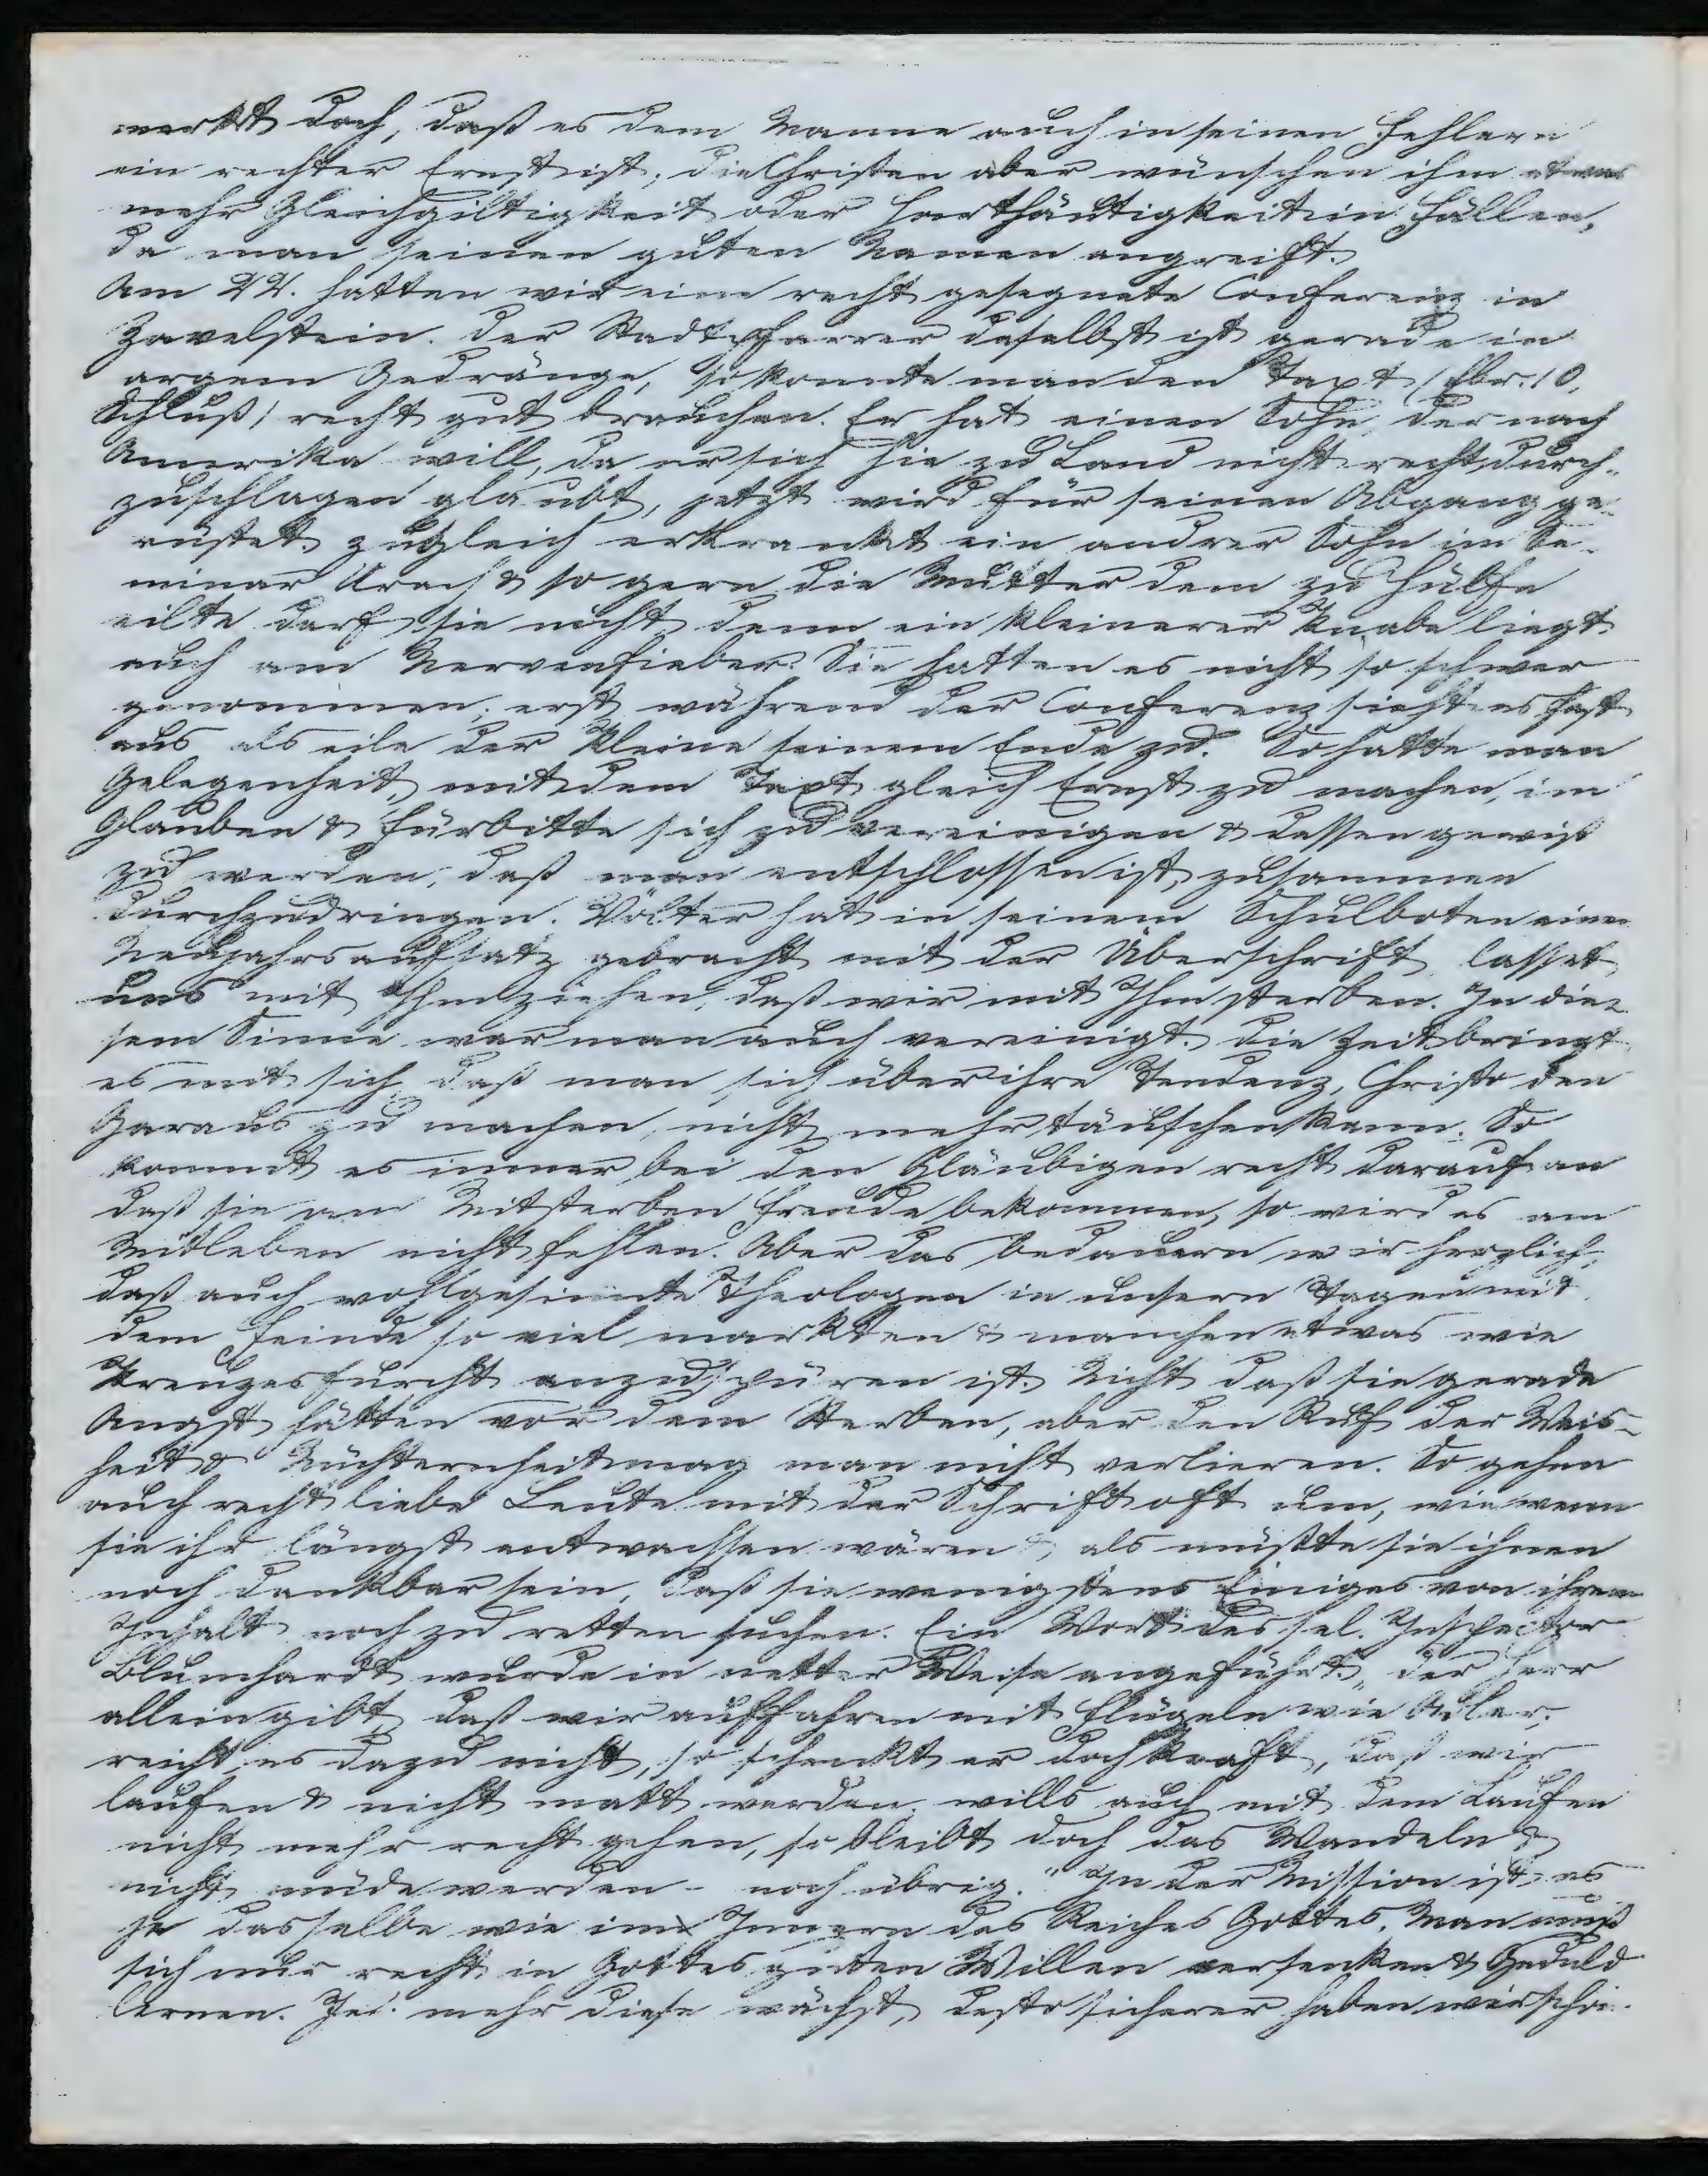 merkt doch, daß es dem Manne auch in seinen Fehlern
ein rechter Ernst ist; die Christen aber wünschen ihm etwas
mehr Gleichgiltigkeit oder Harthäutigkeit in Fällen,
da man seinen guten Namen angreift.
Am 22. hatten wir eine recht gesegnete Conferenz in
Zavelstein. Der Stadtpfarrer daselbst ist gerade in
argem Gedränge, so konnte man den Text (Ebr. 10,
Schluß) recht gut brauchen. Er hat einen Sohn, der nach
Amerika will, da er sich hie zu Land nicht recht durch-
zuschlagen glaubt, jetzt wird für seinen Abgang ge-
rüstet. Zugleich erkrankt ein andrer Sohn im Se-
minar Urach & so gern die Mutter dem zu Hülfe
eilte darf sie nicht denn ein kleinerer Knabe liegt
auch am Nervenfieber. Sie hatten es nicht so schwer
genommen; erst während der Conferenz sieht es fast
aus als eile der Kleine seinem Ende zu. So hatte man
Gelegenheit, mit dem Text gleich Ernst zu machen, im
Glauben & Fürbitte sich zu vereinigen & dessen gewiß
zu werden, daß man entschlossen ist, zusammen
durchzudringen. Völter hat in seinem Schulboten einen
Neujahrsaufsatz gebracht mit der Überschrift, lasset
uns mit Ihm ziehen, daß wir mit Ihm sterben. In die-
sem Sinne war man auch vereinigt. Die Zeit bringt
es mit sich, daß man sich über ihre Tendenz, Christo den
Garaus zu machen, nicht mehr täuschen kann. So
kommt es immer bei den Gläubigen recht darauf an
daß sie am Mitsterben Freude bekommen, so wird es am
Mitleben nicht fehlen. Aber das bedauern wir herzlich,
daß auch wohlgesinnte Theologen in unsern Tagen mit
dem Feinde so viel markten & manchen etwas wie
Kreuzesfurcht anzuspüren ist. Nicht daß sie gerade
Angst hätten vor dem Sterben, aber den Ruf der Weis-
heit & Nüchternheit mag man nicht verlieren. So gehen
auch recht liebe Leute mit der Schrift oft um, wie wenn
sie ihr längst entwachsen wären &, als müßte sie ihnen
noch dankbar sein, daß sie wenigstens Einiges von ihrem
Inhalt noch zu retten suchen. Ein Wort des sel. Inspector
Blumhardt wurde in netter Weise angeführt. „Der Herr
allein gibt, daß wir auffahren mit Flügeln wie Adler;
reicht es dazu nicht, so schenkt er doch Kraft, daß wir
laufen & nicht matt werden, wills auch mit dem Laufen
nicht mehr recht gehen, so bleibt doch das Wandeln &
nicht müde werden - noch übrig." In der Mission ist es
ja dasselbe wie im Innern des Reiches Gottes. Man muß
sich nur recht in Gottes guten Willen versenken & Geduld
lernen. Je mehr diese wächst, desto sicherer haben wir schon